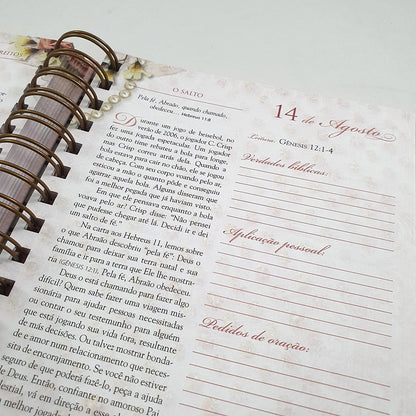 O SALTO
Pela fé, Abraão, quando chamado,
obedeceu...
Hebreus 11:8
Durante um jogo de beisebol, no
verão de 2006, o jogador C. Crisp
fez uma jogada espetacular. Um jogador
do outro time rebateu a bola para longe,
mas Crisp correu atrás dela. Quando a
bola estava para cair no chão, ele se jogou
de cabeça. Com seu corpo voando pelo ar,
esticou a mão o quanto pôde e conseguiu
agarrar aquela bola. Alguns disseram que
foi a melhor pegada que já haviam visto.
Em que ele pensava enquanto a bola
voava pelo ar? Crisp disse: "Não pensei
que pudesse chegar até lá. Decidi ir e dei
um salto de fé."
Na carta aos Hebreus 11, lemos sobre
o que Abraão descobriu "pela fé": Deus o
chamou para deixar sua terra natal e sua
família e ir para a terra que Ele lhe mostra-
(GÊNESIS 12:1). Pela fé, Abraão obedeceu.
Deus o está chamando para fazer algo
Quem sabe fazer uma viagem mis-
sionária para ajudar pessoas necessitadas
ou contar o seu testemunho para alguém
que está jogando sua vida fora, resultado
de más decisões. Ou talvez mostrar bonda-
de e amor num relacionamento que neces-
sita de encorajamento. Se você não estiver
seguro de que poderá fazê-lo, peça a ajuda
de Deus. Então, confiante no amoroso Pai
celestial, vá em direção a esse
melhor jogada
14 de Agosto
Leitura: GÊNESIS 12:1-4
Verdades bíblicas:
Aplicação pessoal:
Pedidos de oração: